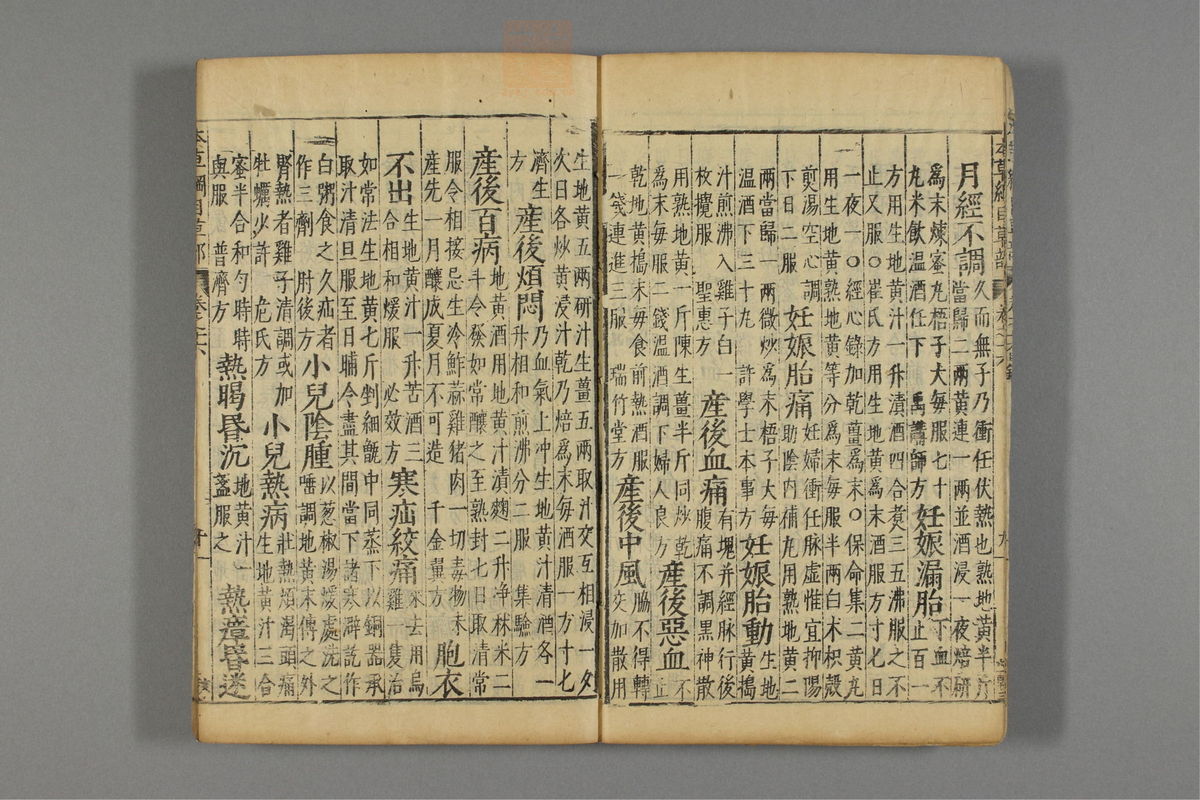 月經不調
久而無子乃衝任伏熱也熟地黃半斤
當歸二兩黃連一兩並酒浸一夜焙研
為末煉蜜丸梧子大每服七十
丸米飲溫酒任下 禹講師方
妊娠漏胎
下血不
止百一
方用生地黃汁一升漬酒四合煮三五沸服之不
止又服○崔氏方用生地黃為末酒服方寸七日
一夜一○經心錄加乾薑為末○保命集二黃丸
用生地黃熟地黃等分為末每服半兩白朮枳殼
煎湯空心調
下日二服
妊娠胎痛
妊婦衝任脉虛惟宜抑陽
助陰內補丸用熟地黃二
兩當歸一兩微炒為末梧子大每
溫酒下三十丸 許學士本事方
妊娠胎動
生地
黃搗
汁煎沸入雞子白一
枚攪服 聖惠方
產後血痛
有塊并經脉行後
腹痛不調黑神散
用熟地黃一斤陳生薑半斤同炒乾
為末每服二錢溫酒調下婦人良方
產後惡血
不
止
乾地黃搗末每食前熱酒服
一錢連進三服 瑞竹堂方
產後中風
脇不得轉
交加散用
生地黃五兩研汁生薑五兩取汁交互相浸一夕
次日各炒黃浸汁乾乃焙為末每酒服一方寸七
濟生
方
產後煩悶
乃血氣上冲生地黃汁清酒各一
升相和煎沸分二服 集驗方
產後百病
地黃酒用地黃汁漬麴二升淨秫米二
斗令發如常釀之至熟封七日取清常
服令相接忌生冷鮓蒜雞猪肉一切毒物未
產先一月釀成夏月不可造 千金翼方
胞衣
不出
生地黃汁一升苦酒三
合相和煖服 必效方
寒疝絞痛
來去用烏
雞一隻治
如常法生地黃七斤剉細甑中同蒸下以銅器承
取汁清旦服至日晡令盡其間當下諸寒澼訖作
白粥食之久疝者
作三劑 肘後方
小兒陰腫
以葱椒湯煖處洗之
唾調地黃末傅之外
腎熱者雞子清調或加
牡蠣少許 危氏方
小兒熱病
壯熱煩渴頭痛
生地黃汁三合
蜜半合和勻時時
與服 普濟方
熱暍昏沉
地黃汁一
盞服之
熱瘴昏迷